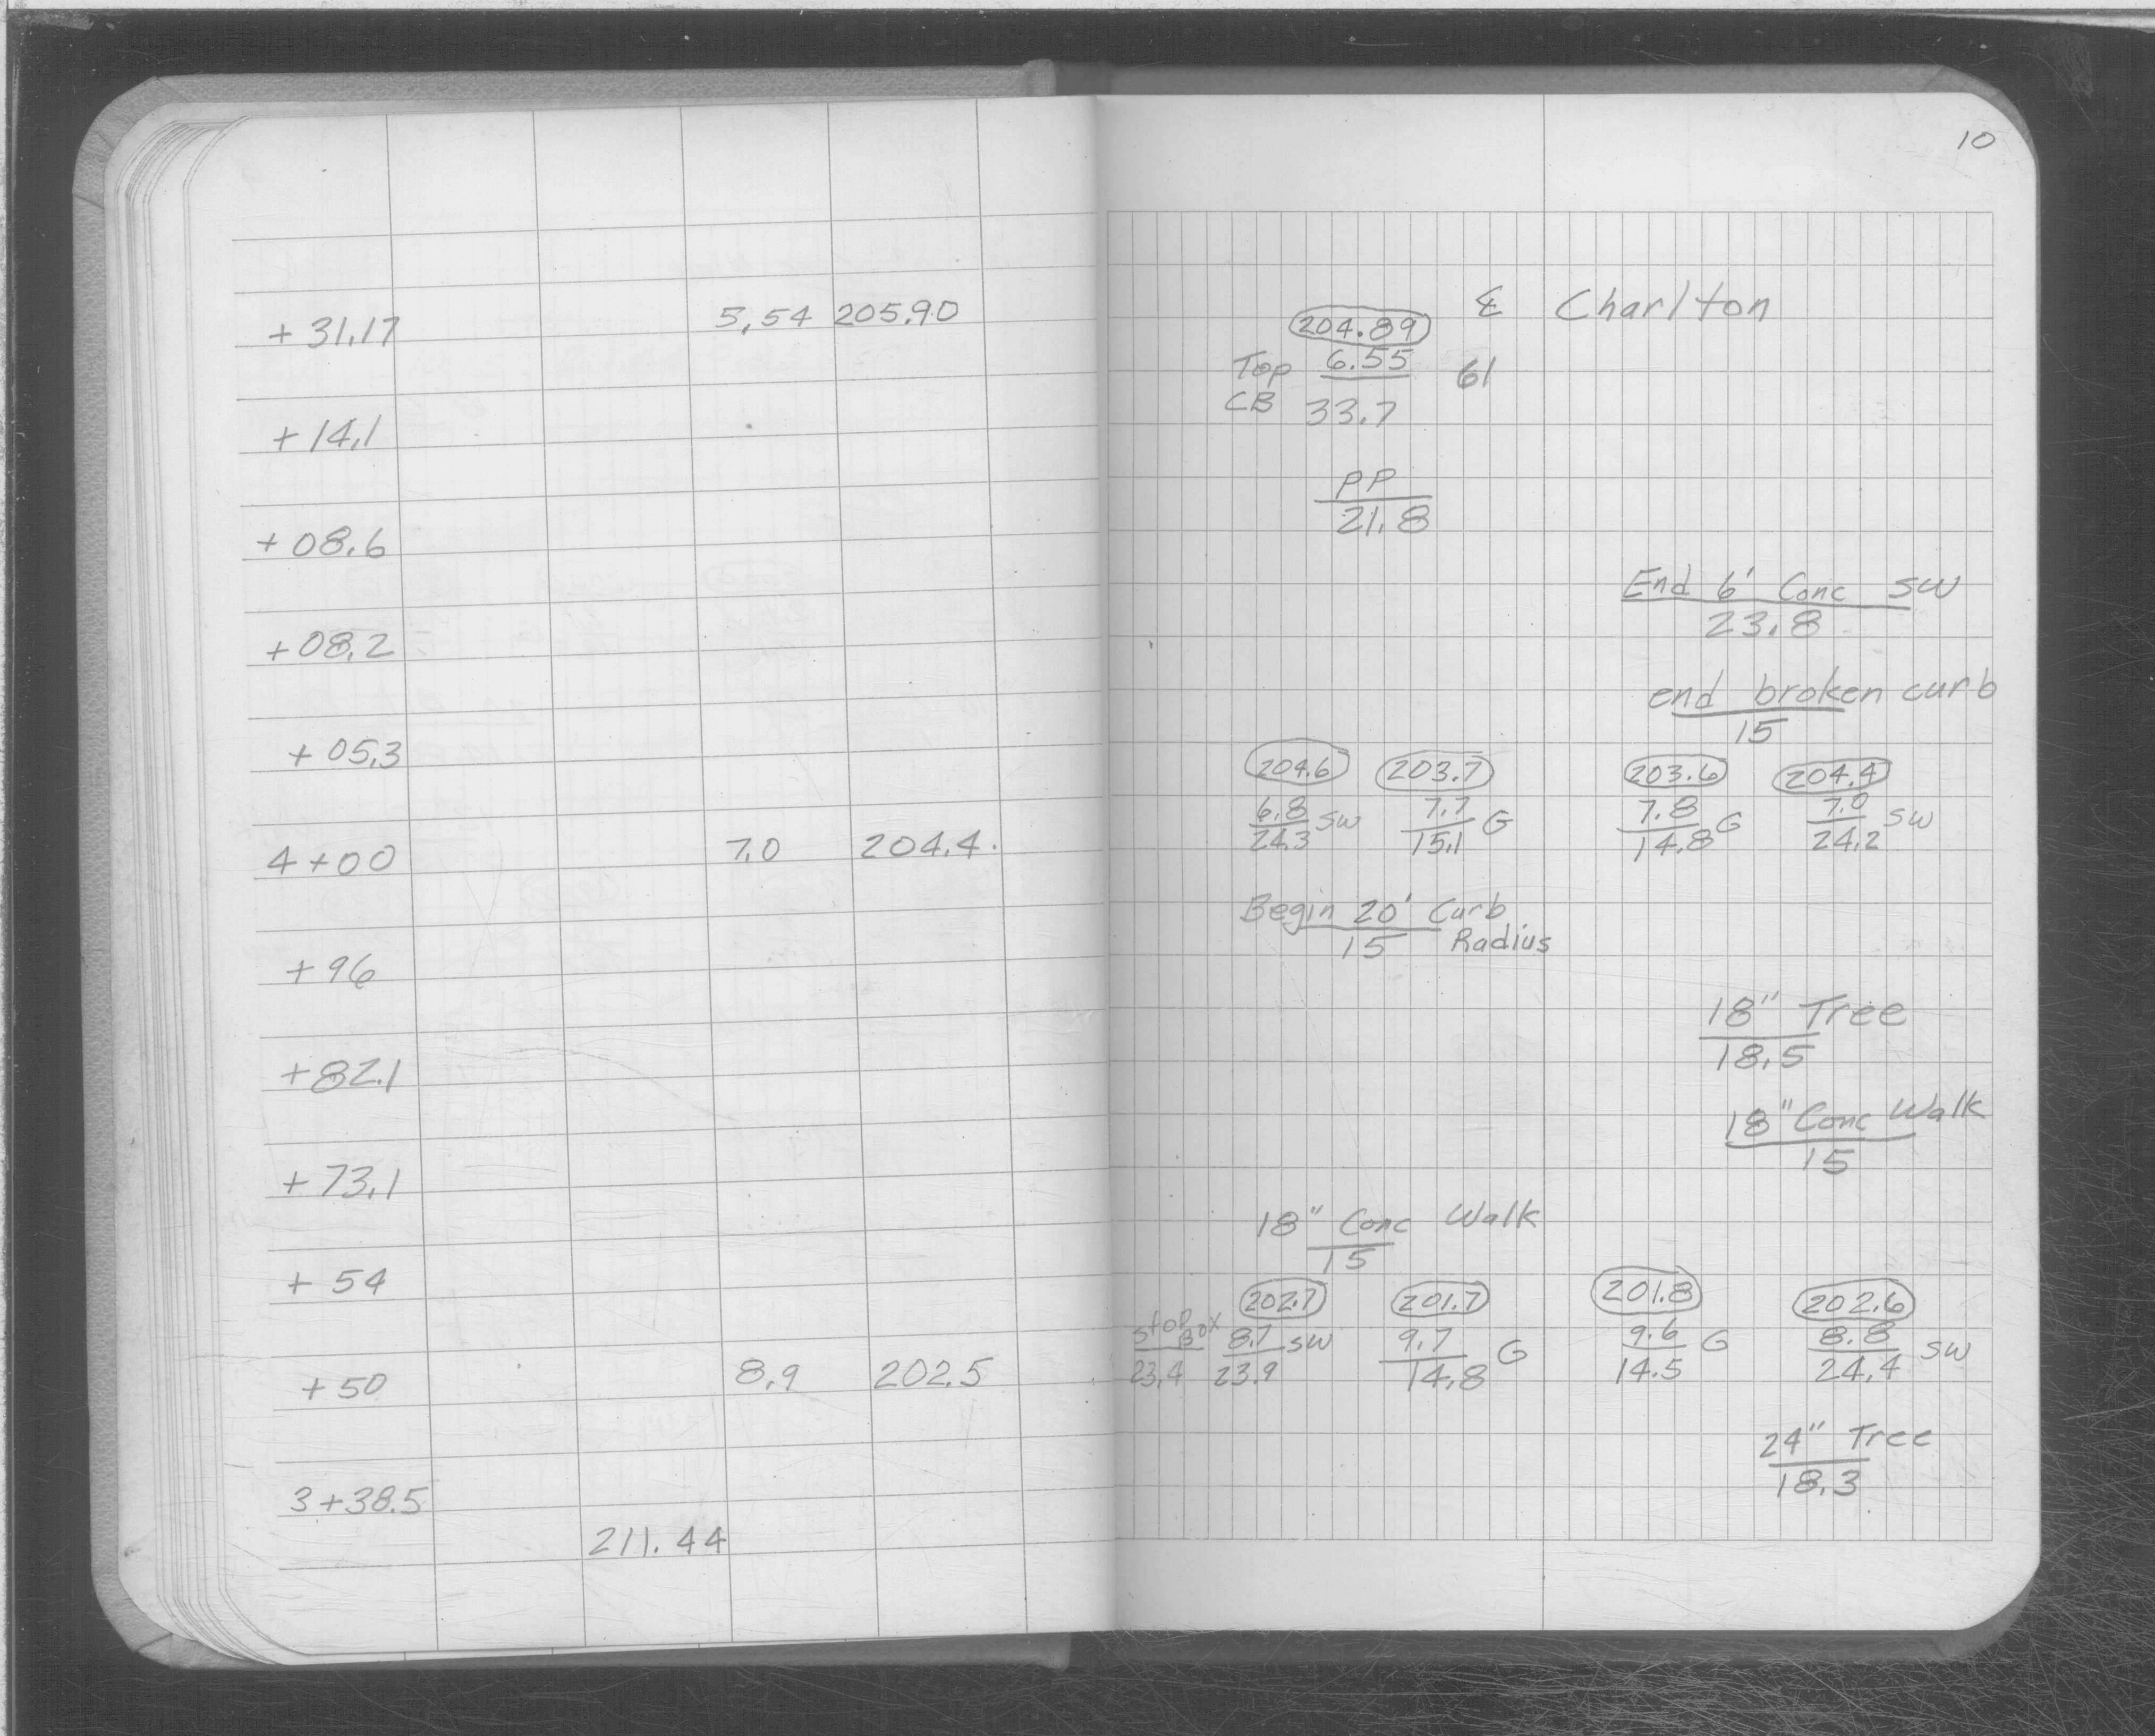 10
+ 31.17 5.54 205.90
+ 14.1
+ 08.6
+ 08.2
+ 05.3
4 + 00 7.0 204.4
+ 96
+ 82.1
+ 73.1
+ 54
+ 50 8.9 202.5
3 + 38.5
211.44
204.89 ℄ Charlton
Top 6.55 61
CB 33.7
PP
21.8
End 6' Conc SW
23.8
end broken curb
15
204.6 203.7 203.6 204.4
6.8 SW 7.7 G 7.8 G 7.0 SW
24.3 15.1 14.8 24.2
Begin 20' Curb
15 Radius
18" Tree
18.5
18" Conc Walk
15
18" Conc Walk
15
202.7 201.7 201.8 202.6
Stop Box 8.7 SW 9.7 G 9.6 G 8.8 SW
23.4 23.9 14.8 14.5 24.4
24" Tree
18.3